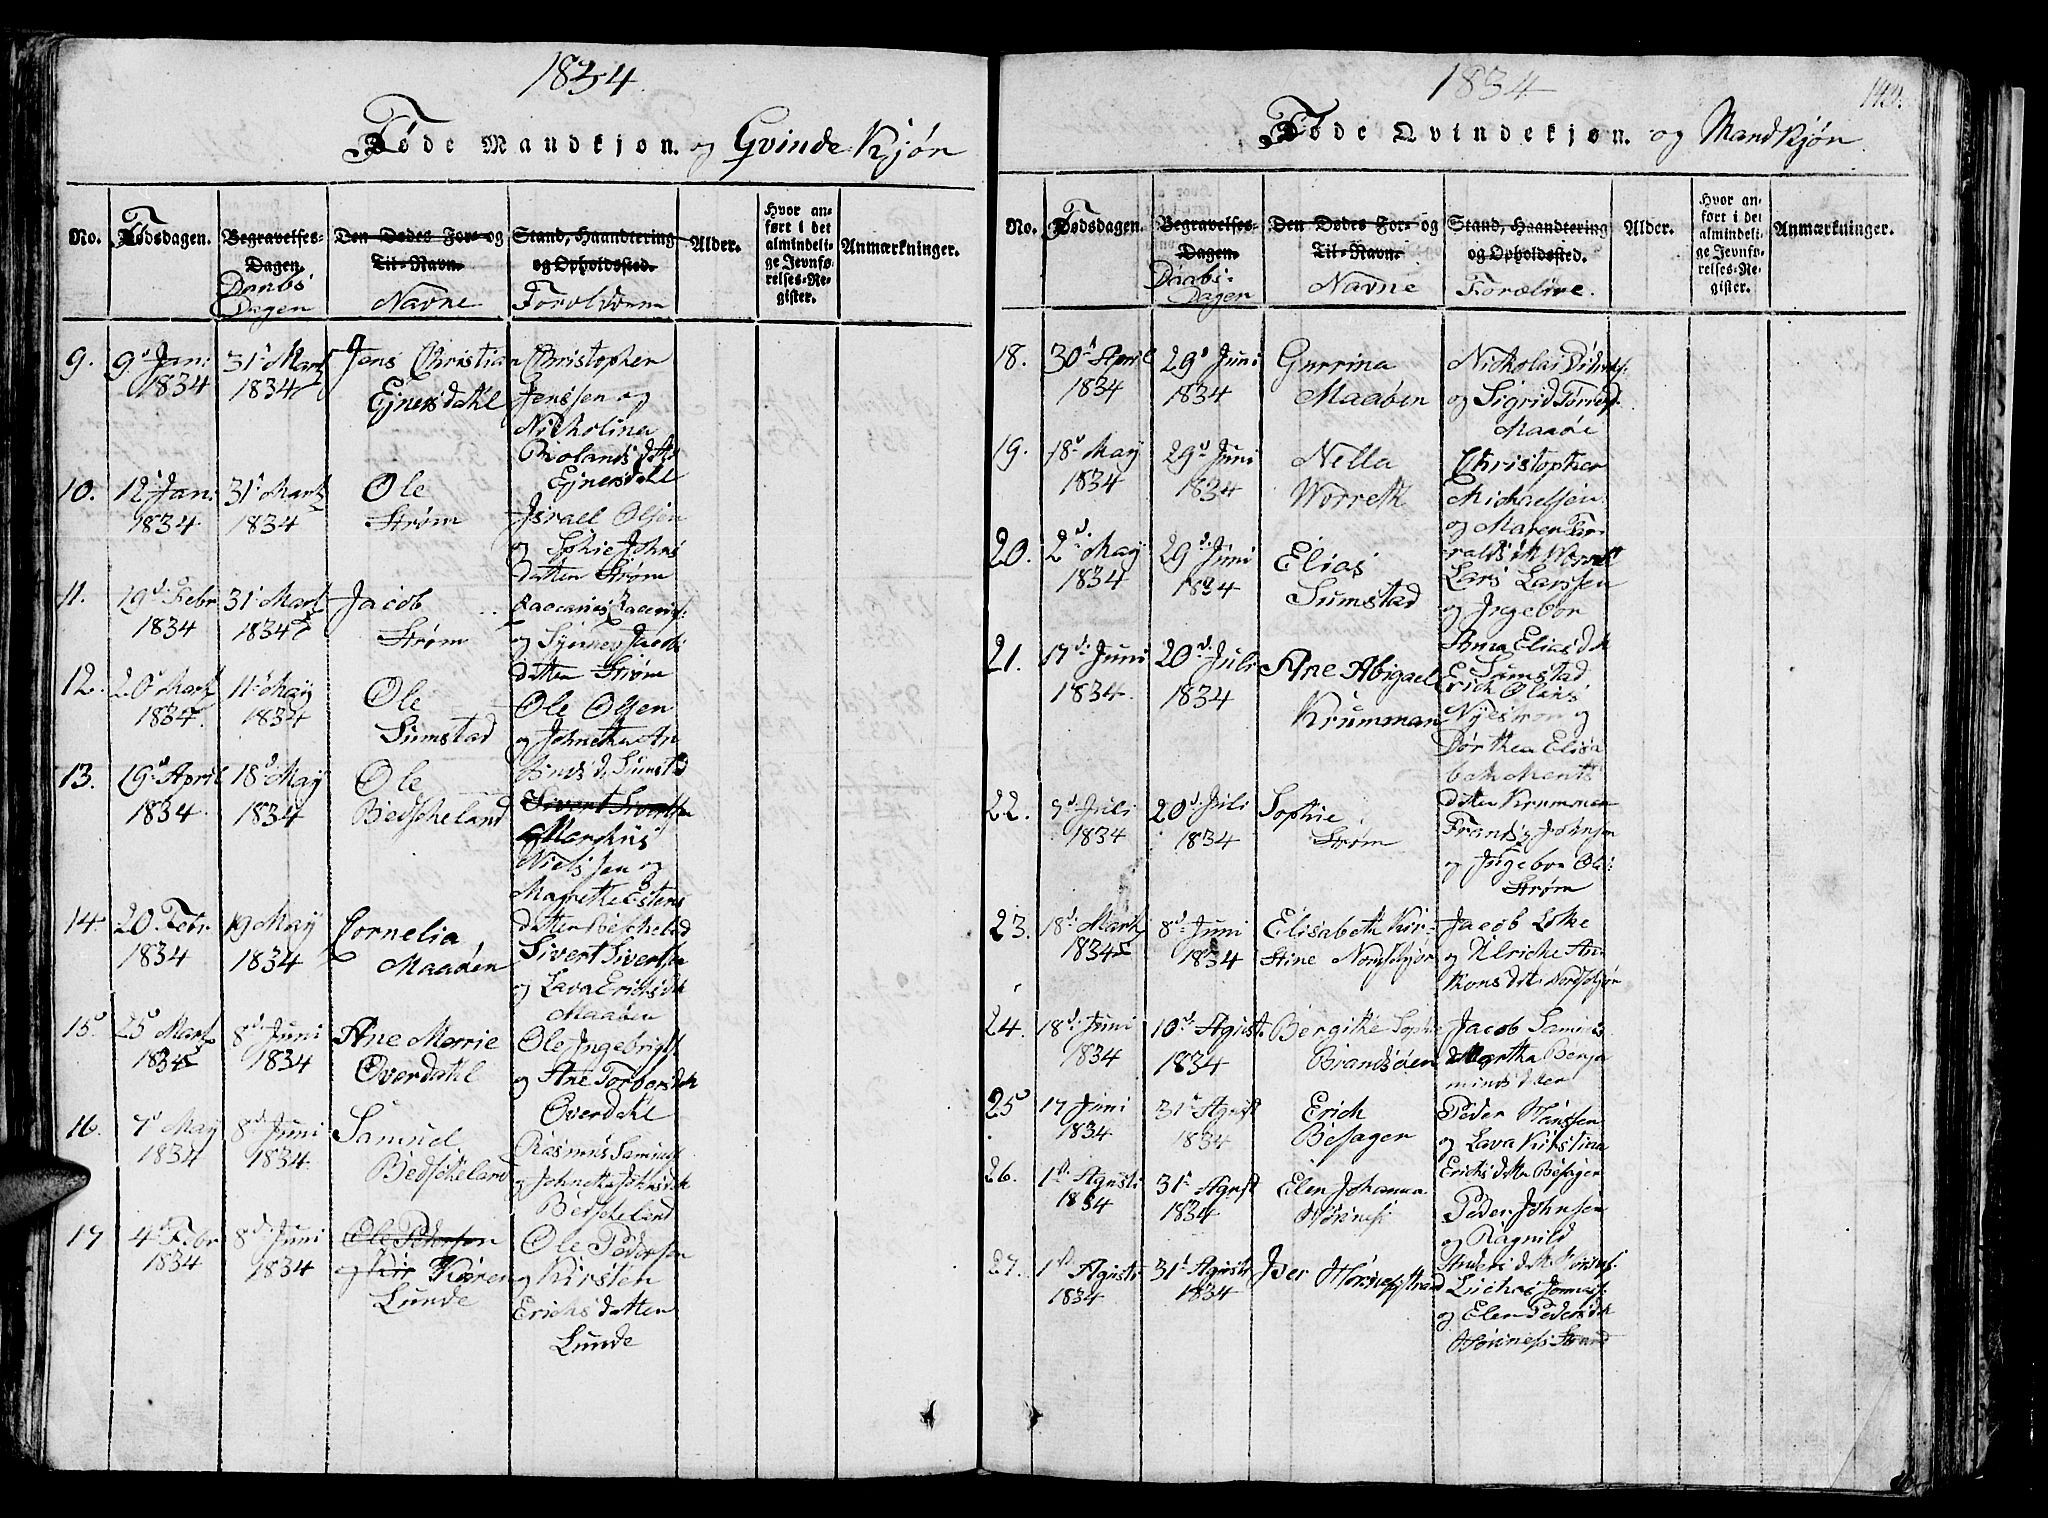 1834
Føde Mandkjøn. og Qvinde Kjøn
No.
Fødsdagen.
Begravelses-
Dagen.
Daabs
Dagen
Den Dødes For- og
Til-Navn.
Navne
Stand, Haandtering
og Opholdssted.
Forældrene
Alder.
Hvor an-
ført i det
almindeli-
ge Jevnfø-
relses-Re-
gister.
Anmærkninger.
9. 9d Jan: 1834
31d Martz 1834
Jens Christian
Ejnersdahl
Christopher
Jenssen og
Nicholina
Rolandsdatter
Ejnersdahl
10. 12d Jan: 1834
31d Martz 1834
Ole
Strøm
Israel Olsen
og Sophie Johns
datter Strøm
11. 19d Febr 1834
31d Martz 1834
Jacob
Strøm
og Jacobs
datter Strøm
12. 20d Martz 1834
11d May 1834
Ole
Sumstad
Ole Olsen
og Johnetha An
Sumstad
13. 19d April 1834
18d May 1834
Ole
Bedscheland
Sivert Sivertsen
Markus
Nielssen og
Magrethe Estens
datter Bescheland
14. 20 Febr. 1834
19 May 1834
Cornelia
Maaøen
Sivert Sivertsen
og Lava Erichsdtr
Maaøen
15. 25d Martz 1834
8d Juni 1834
Ane Merrie
Overdahl
Ole Ingebrigts
og Ane Torbersdtr
Overdahl
16. 7d May 1834
8d Juni 1834
Samuel
Bedscheland
Rasmus Samuels
og Johnetha Johnsdtr
Bescheland
17 4d Febr 1834
8d Juni 1834
Ole Pedersen
og Kir Karen
Lunde
Ole Pedersen
og Kirsten
Erichsdatter
Lunde
1834
143.
Føde Qvindekjøn. og Mandkjøn.
No.
Fødsdagen.
Begravelses-
Dagen.
Daabs-
Dagen
Den Dødes For- og
Til-Navn.
Navne
Stand, Haandtering
og Opholdssted.
Forælire.
Alder.
Hvor an-
ført i det
almindeli-
ge Jevnfø-
relses-Re-
gister.
Anmærkninger.
18. 30d April 1834
29d Juni 1834
Gurrina
Maaøen
Nicholai
og Sigrid
Maaøe
19. 18d May 1834
29d Juni 1834
Nella
Worreth
Christopher
Michaelsen
og Maren Har
raldsdtr Worreth
20. 2d May 1834
29d Juni 1834
Elias
Sumstad
Lars Larssen
og Ingebor
Anna Eliasdtr
Sumstad
21. 17d Juni 1834
20d Juli 1834
Ane Abigael
Krumman
Erich Olins
og
Dorthea Elisa
beth Ments
datter Krumman
22. 5d Juli 1834
20d Juli 1834
Sophie
Strøm
Frands Johnsen
og Ingebor Ols:
Strøm
23. 18d Martz 1834
8d Juni 1834
Elisabeth Kir-
stine Nordskjør
Jacob Loke
og Ulriche An
thonsdtr: Nordskjør
24. 18d Juni 1834
10d Agust 1834
Bergithe Sophie
Brandsøen
Jacob
Martha Benja
minsdtter
25 17 Juni 1834
31d Agust 1834
Erich
Besager
Peder Hanssen
og Lava Kirstina
Erichsdtr Besager
26. 1d Agusti 1834
31d Agust 1834
Elen Johanna
Hornes
Peder Johnsen
og Ragnild
Andersdtr
27. 1d Agusti 1834
31d Agusti 1834
Iver Hornesstrand
Luchas
og Elen Pedersdtr
Strand